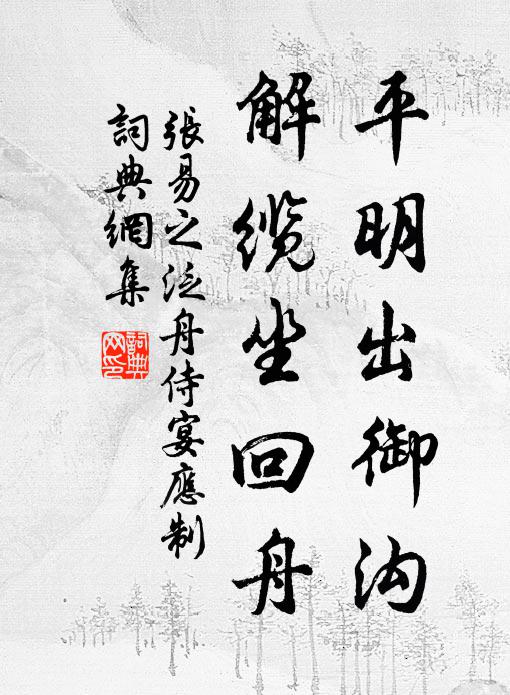 平明出御沟
解缆坐回舟
張易之泛舟侍宴應制
詞典網集
詞典网印